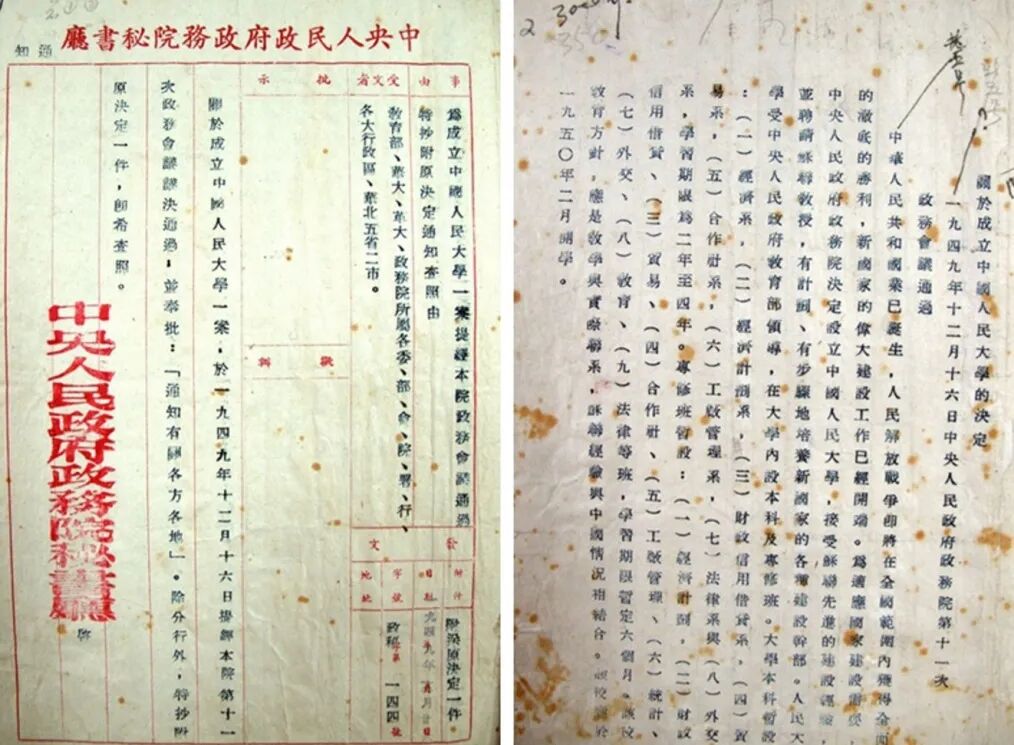 中央人民政府政務院秘書廳
通知
事由
為成立中國人民大學一案提經本院政務會議通過
特抄附原決定通知查照由
受文者
教育部、華大、革大、政務院所屬各委、部、會、院、署、行、
各大行政區、華北五省二市。
批示
擬辦
發文
附件
附決原決定一件
日期
一九四九年
月
日
字號
政秘字第一四四號
地址
關於成立中國人民大學一案，於一九四九年十二月十六日提經本院第十一
次政務會議議決通過，並奉批：「通知有關各方各地」。除分行外，特抄附
原決定一件，即希查照。
中央人民政府政務院秘書廳
啓
2
關於成立中國人民大學的決定
一九四九年十二月十六日中央人民政府政務院第十一次
政務會議通過
中華人民共和國業已誕生，人民解放戰爭即將在全國範圍內獲得全面
的澈底的勝利，新國家的偉大建設工作已經開端。為適應國家建設需要，
中央人民政府政務院決定設立中國人民大學，接受蘇聯先進的建設經驗，
並聘請蘇聯教授，有計劃、有步驟地培養新國家的各種建設幹部。人民大
學受中央人民政府教育部領導，在大學內設本科及專修班。大學本科暫設
：（一）經濟系，（二）經濟計劃系，（三）財政信用借貸系，（四）貿
易系，（五）合作社系，（六）工廠管理系，（七）法律系與（八）外交
系，學習期限為二年至四年。專修班暫設：（一）經濟計劃、（二）財政
信用借貸、（三）貿易、（四）合作社、（五）工廠管理、（六）統計、
（七）外交、（八）教育、（九）法律等班，學習期限暫定六個月。該校
教育方針，應是教學與實際聯系，蘇聯經驗與中國情況相結合。該校應於
一九五〇年二月開學。